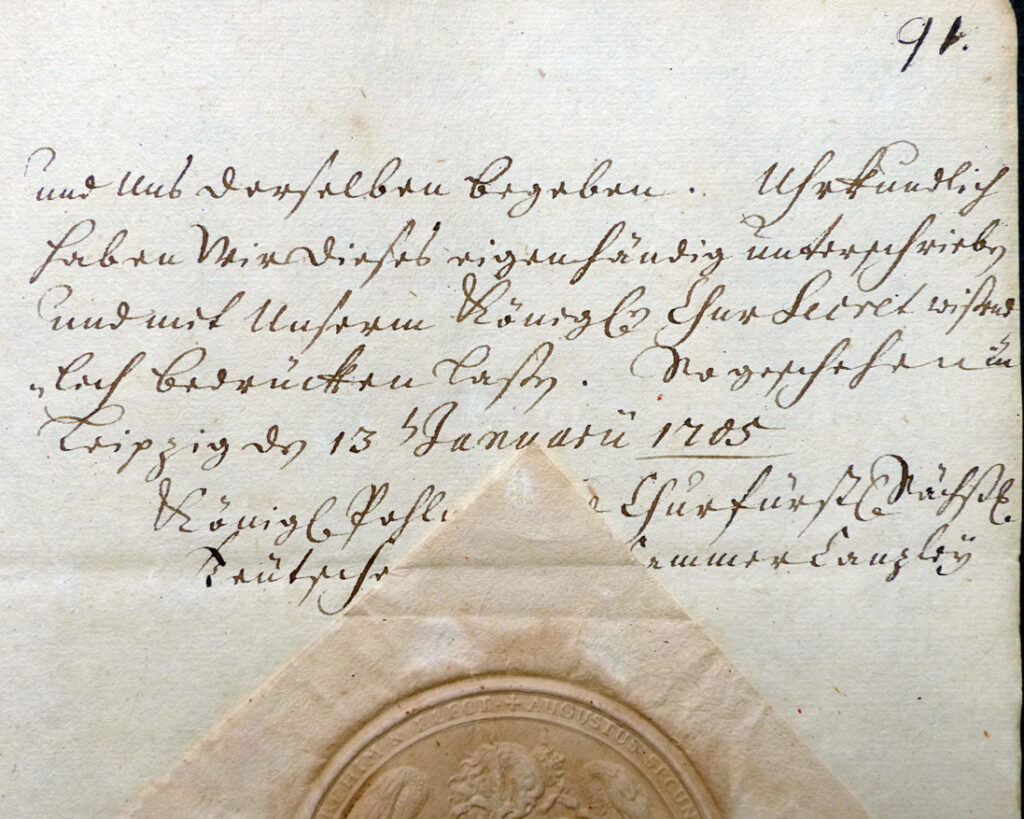 91.
und Uns derselben begeben. Uhrkundlich
haben Wir dieses eigenhändig unterschrieben
und mit Unserm Königl. Chur Secret wißend
lich bedrücken laßen. So geschehen in
Leipzig den 13 Januarii 1705
Königl. Pohl Churfürstl. Sächß.
Teütsche ammer Canzley
ELECT. + AUGUSTUS SECUN